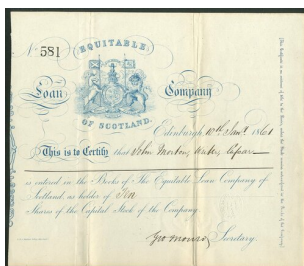 No. 581
EQUITABLE
Loan Company
OF SCOTLAND.
Edinburgh 10th Jany. 1861
This is to Certify that John Morton,
is entered in the Books of The Equitable Loan Company of
Scotland, as holder of Ten
Shares of the Capital Stock of the Company.
Geo Monro, Secretary.